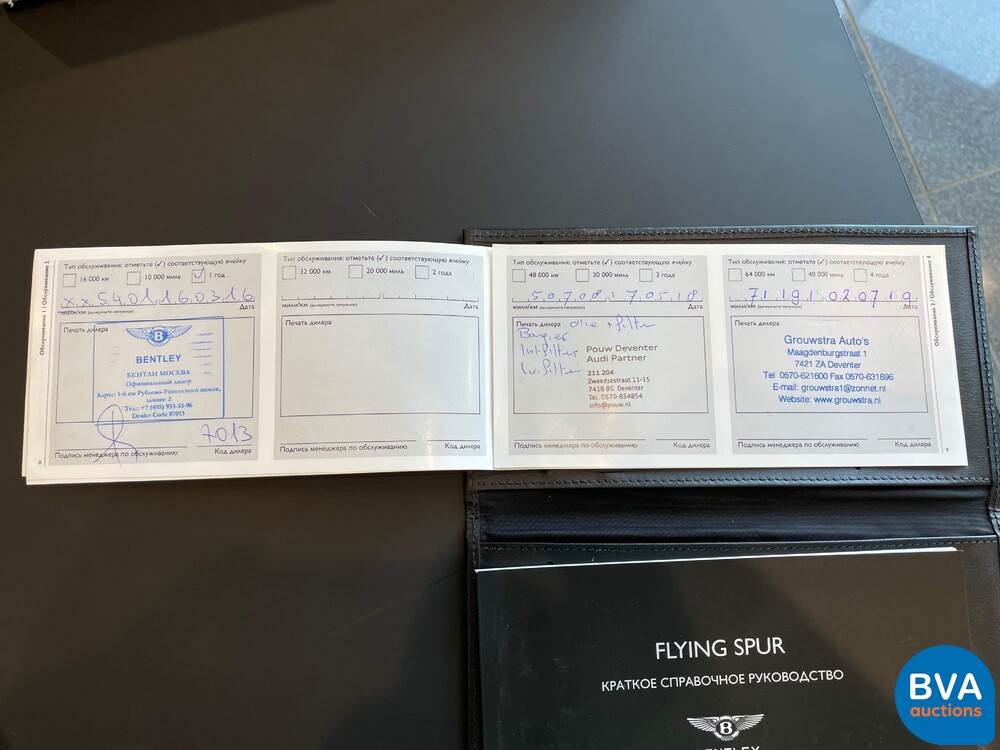 Обслуживание 1 / Обслуживание 2
Тип обслуживания: отметьте (✓) соответствующую ячейку
16 000 км 10 000 миль ✓ 1 год
x x 5 4 0 1 1 6 0 3 1 6
мили/км (вычеркните ненужное) Дата
Печать дилера
BENTLEY
БЕНТЛИ МОСКВА
Официальный дилер
Адрес: 1-й км Рублево-Успенского шоссе,
здание 2
Тел.: +7 (495) 933-33-96
Dealer Code 07013
7013
Подпись менеджера по обслуживанию Код дилера
Тип обслуживания: отметьте (✓) соответствующую ячейку
32 000 км 20 000 миль 2 года
мили/км (вычеркните ненужное) Дата
Печать дилера
Подпись менеджера по обслуживанию Код дилера
Тип обслуживания: отметьте (✓) соответствующую ячейку
48 000 км 30 000 миль 3 года
5 0 7 0 8 1 7 0 5 1 8
мили/км (вычеркните ненужное) Дата
Печать дилера olie + filter
Bougies
Int. filter
Lu. filter
Pouw Deventer
Audi Partner
211 204
Zweedsestraat 11-15
7418 BG Deventer
Tel. 0570-854854
info@pouw.nl
Подпись менеджера по обслуживанию Код дилера
Тип обслуживания: отметьте (✓) соответствующую ячейку
64 000 км 40 000 миль 4 года
7 1 1 9 1 0 2 0 7 1 9
мили/км (вычеркните ненужное) Дата
Печать дилера
Grouwstra Auto's
Maagdenburgstraat 1
7421 ZA Deventer
Tel 0570-621600 Fax 0570-631896
E-mail: grouwstra1@zonnet.nl
Website: www.grouwstra.nl
Подпись менеджера по обслуживанию Код дилера
Обслуживание 3 / Обслуживание 4
FLYING SPUR
КРАТКОЕ СПРАВОЧНОЕ РУКОВОДСТВО
B
BENTLEY
BVA
auctions